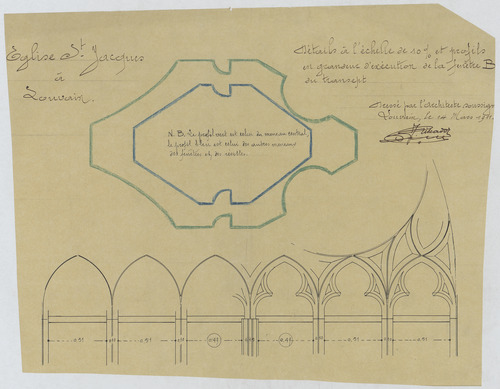 Eglise St. Jacques
à
Louvain.
Détails à l'échelle de 10 % et profils
en grandeur d'exécution de la fenêtre B
du transept
Dressé par l'architecte soussigné
Louvain, le Mars
N. B. Le profil vert est celui du meneau central,
le profil bleu est celui des autres meneaux
des fenêtres et
0,91
0,91
0,91
0,91
0,91
0,91